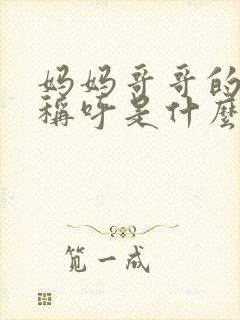 妈妈哥哥的
稱呼是什麼
笕一成